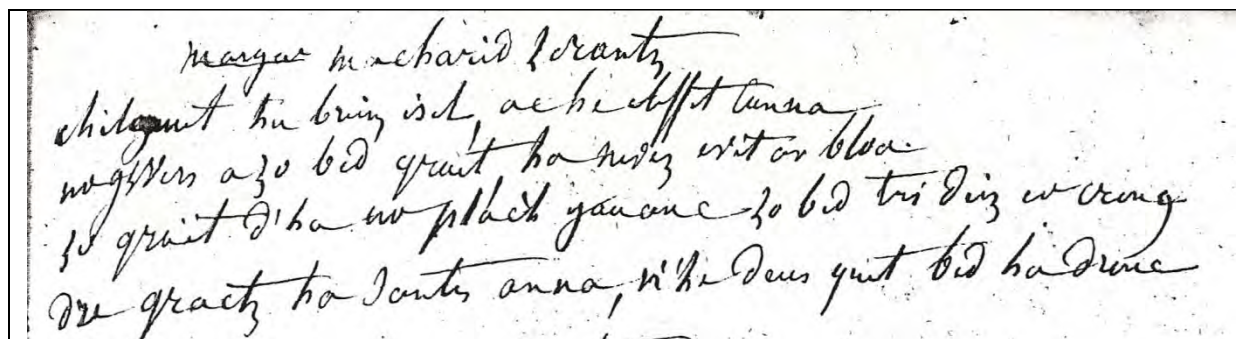 margar macharid Lorantz
chilaouit hu breiz isel, ac he tanna
ur gwers a zo bed grait ha nevez evit ar bloa
zo grait d'ha ur plach yaouanc zo bed tri deiz er croug
dre gractz ha Santes anna, n'he deus quet bed ha drouc